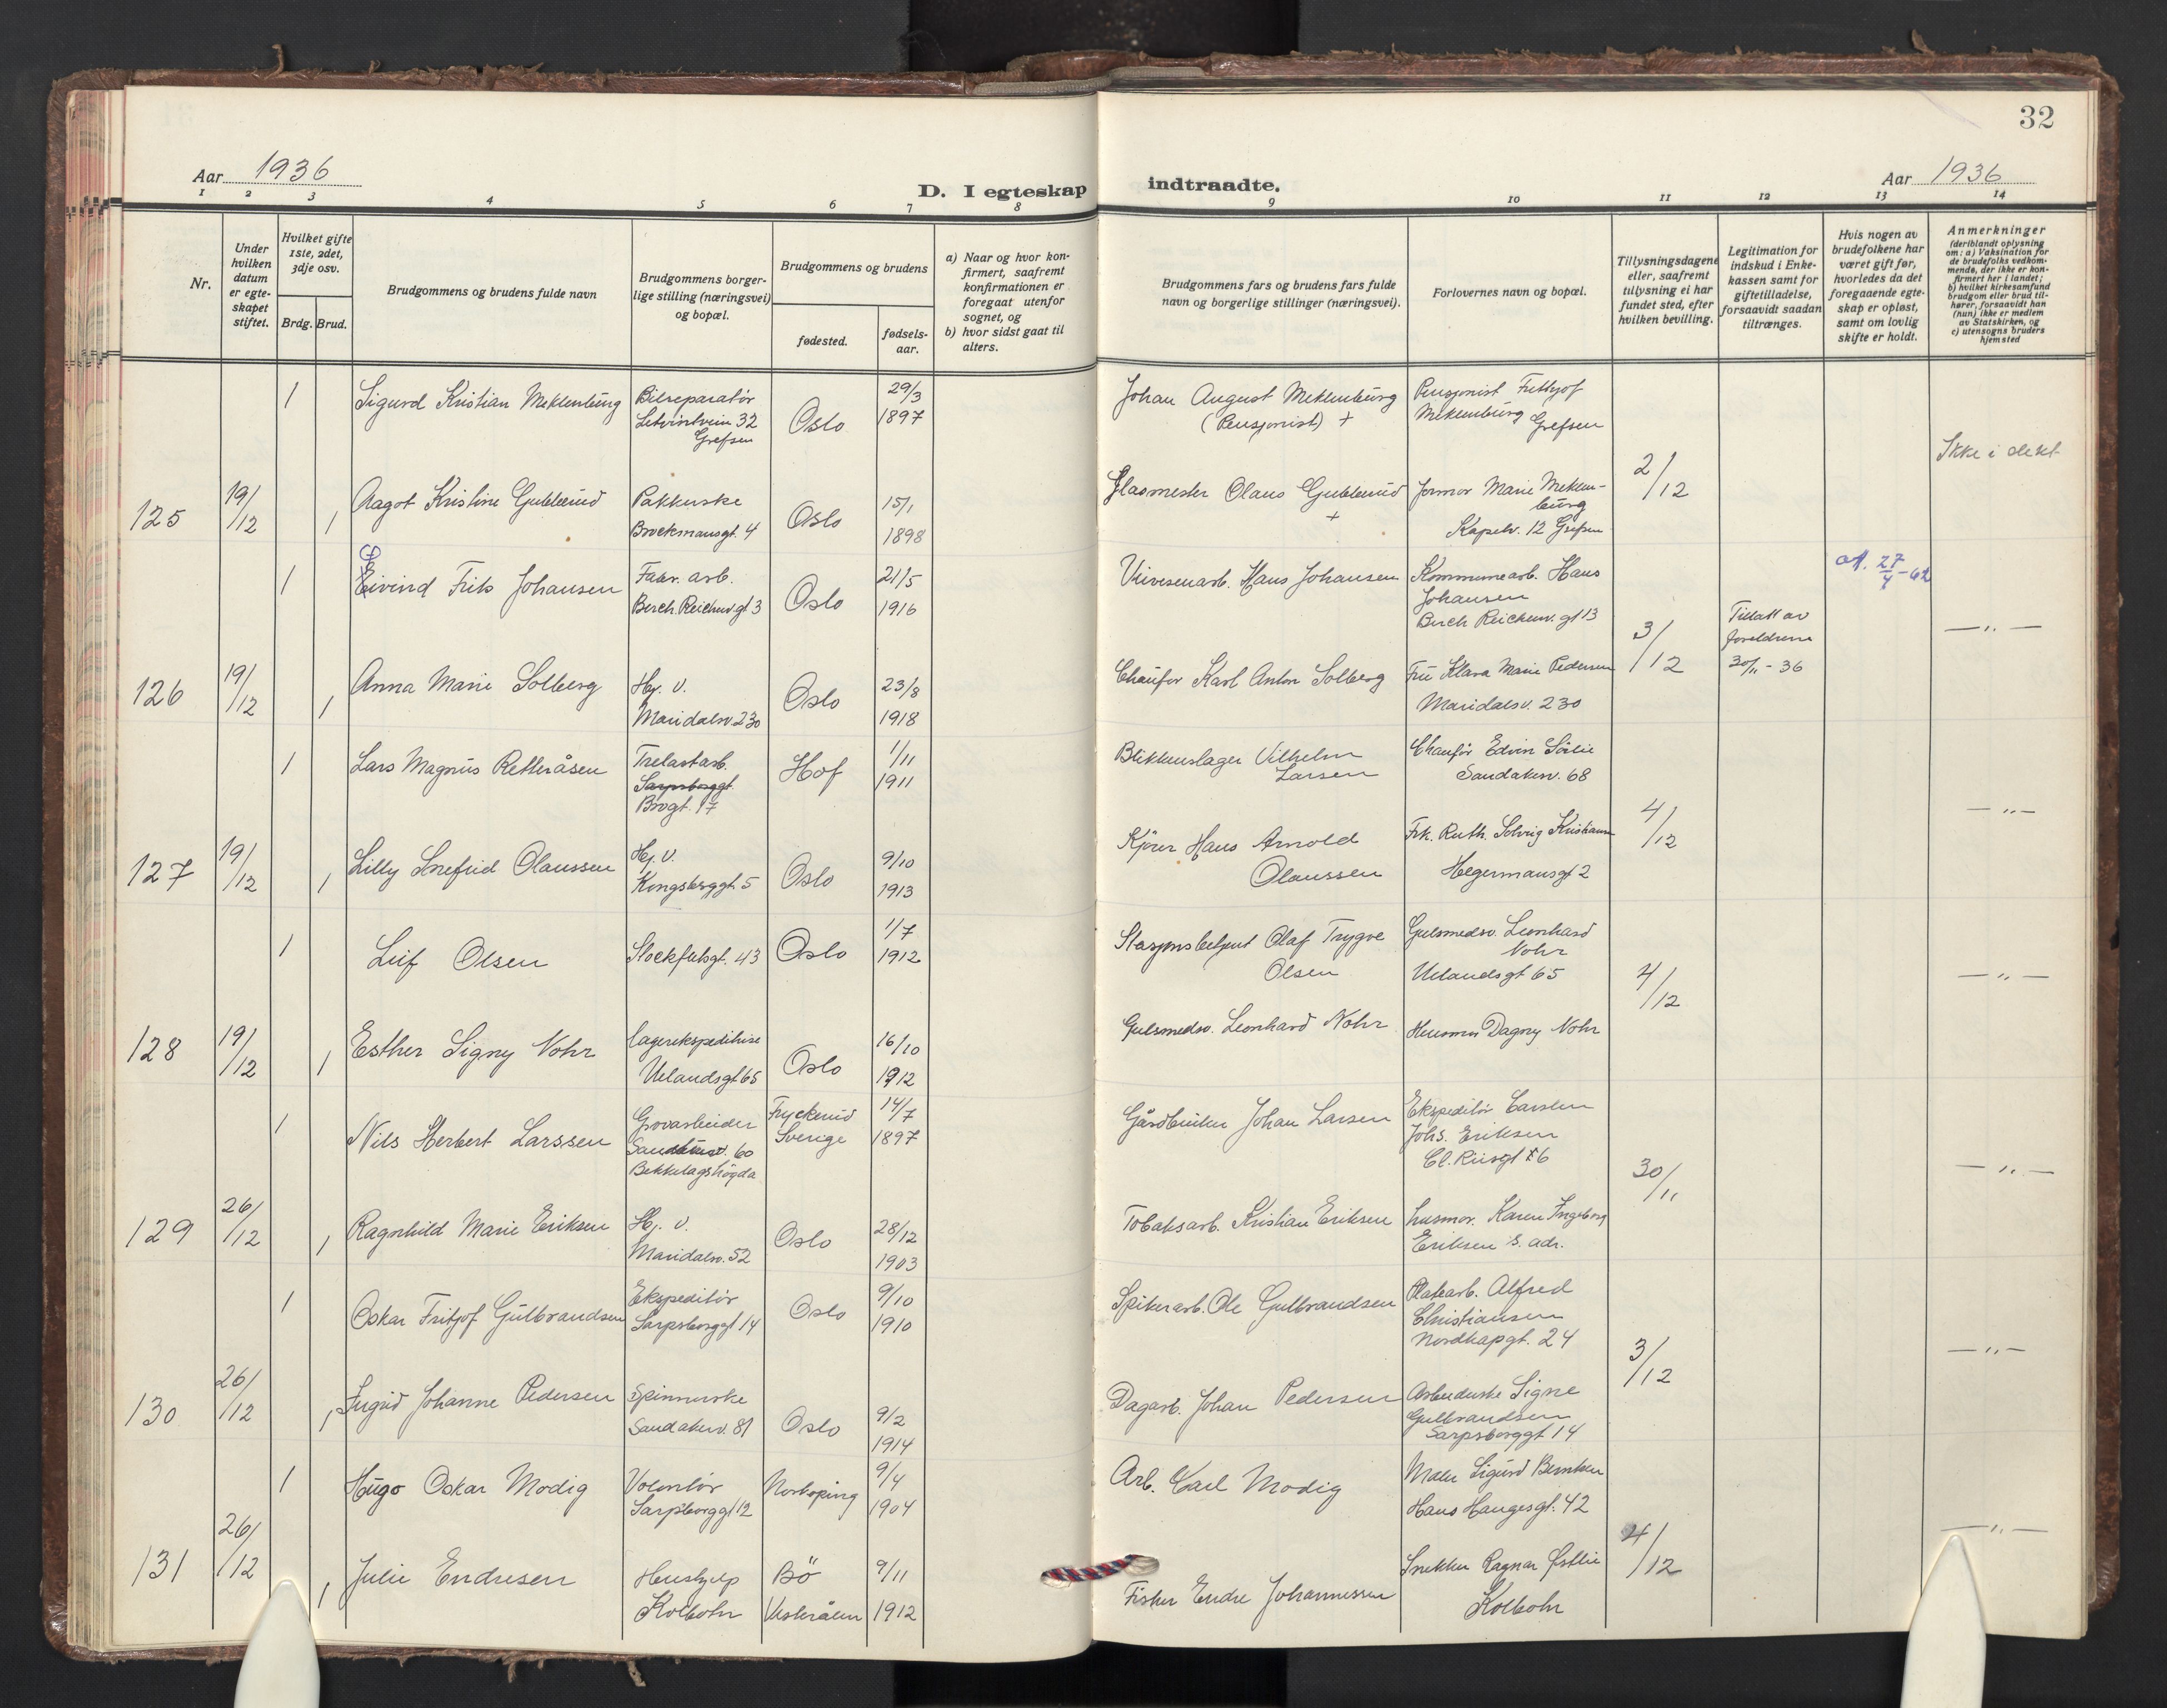 32
Aar 1936
D. I egteskap indtraadte.
Aar 1936
1 2 3 4 5 6 7 8 9 10 11 12 13 14
Nr.
Under hvilken datum er egteskapet stiftet.
Hvilket gifte 1ste, 2det, 3dje osv.
Brdg. Brud.
Brudgommens og brudens fulde navn
Brudgommens borgerlige stilling (næringsvei) og bopæl.
Brudgommens og brudens
fødested.
fødselsaar.
a) Naar og hvor konfirmert, saafremt konfirmationen er foregaat utenfor sognet, og
b) hvor sidst gaat til alters.
Brudgommens fars og brudens fars fulde navn og borgerlige stillinger (næringsvei).
Forlovernes navn og bopæl.
Tillysningsdagene eller, saafremt tillysning ei har fundet sted, efter hvilken bevilling.
Legitimation for indskud i Enkekassen samt for giftetilladelse, forsaavidt saadan tiltrænges.
Hvis nogen av brudefolkene har været gift før, hvorledes da det foregaaende egteskap er opløst, samt om lovlig skifte er holdt.
Anmerkninger
(deriblandt oplysning om: a) Vaksination for de brudefolks vedkommende, der ikke er konfirmert her i landet; b) hvilket kirkesamfund brudgom eller brud tilhører, forsaavidt han (hun) ikke er medlem av Statskirken, og c) utensogns bruders hjemsted
1 Sigurd Kristian Meklenburg Bilreparatør 32 Grefsen Oslo 29/3 1897 Johan August Meklenburg (Pensjonist) + Pensjonist Frithjof Meklenburg Grefsen
125 19/12 1 Aagot Kristine Gubberud Pakkerske Brockmansgt. 4 Oslo 15/1 1898 Glasmester Olaus Gubberud + Marie Meklenburg Kapelv. 12 Grefsen 2/12 Ikke i slekt
1 Eivind Frits Johansen Fabr. arb. Birch. Reichenw. gt 3 Oslo 21/5 1916 Hans Johansen Kommunearb. Hans Johansen Birch Reichenw. gt 13 27/4-62
126 19/12 1 Anna Marie Solberg Hj. v. Maridalsv. 230 Oslo 23/8 1918 Chaufør Karl Anton Solberg Fru Klara Marie Pedersen Maridalsv. 230 3/12 Tillatt av foreldrene 30/11-36 — " —
1 Lars Magnus Retteråsen Trelastarb. Sarpsborggt. Brogt. 17 Hof 1/11 1911 Blikkenslager Vilhelm Larsen Chaufør Edvin Sørlie Sandakerv. 68
127 19/12 1 Lilly Snefrid Olaussen Hj. v. Kongsberggt. 5 Oslo 9/10 1913 Kjører Hans Arnold Olaussen Frk. Ruth. Solveig Kristiansen Hegermansgt 2 4/12 — " —
1 Leif Olsen Stockfletsgt. 43 Oslo 1/7 1912 Stasjonsbetjent Olaf Trygve Olsen Gulsmedsv. Leonhard Nohr Uelandsgt 65
128 19/12 1 Esther Signy Nohr Lagerekspeditrise Uelandsgt 65 Oslo 16/10 1912 Gulsmedsv. Leonhard Nohr Husmor Dagny Nohr 4/12 — " —
1 Nils Herbert Larssen Grovarbeider Sandakerv. 60 Bekkelagshøgda Fryckerud Sverige 14/7 1897 Gårdbruker Johan Larsen Ekspeditør Carsten Johs. Eriksen Cl. Riisgt 6
129 26/12 1 Ragnhild Marie Eriksen Hj. v. Maridalsv. 52 Oslo 28/12 1903 Tobaksarb. Kristian Eriksen Husmor. Karen Ingeborg Eriksen s. adr. 30/11 — " —
1 Oskar Fritjof Gulbrandsen Ekspeditør Sarpsborggt 14 Oslo 9/10 1910 Spikerarb. Ole Gulbrandsen Platearb. Alfred Christiansen Nordkapgt. 24
130 26/12 1 Ingrid Johanne Pedersen Spinnerske Sandakerv. 81 Oslo 9/2 1914 Dagarb. Johan Pedersen Arbeiderske Signe Gulbrandsen Sarpsborggt 14 3/12 — " —
1 Hugo Oskar Modig Volontør Sarpsborggt 12 Norkøping 9/4 1904 Arb. Carl Modig Maler Sigurd Berntsen Hans Haugesgt. 42
131 26/12 1 Julie Endresen Hushjelp Kolbotn Bö Vesterålen 9/11 1912 Fisker Endre Johannessen Snekker Ragnar Østlie Kolbotn 4/12 — " —